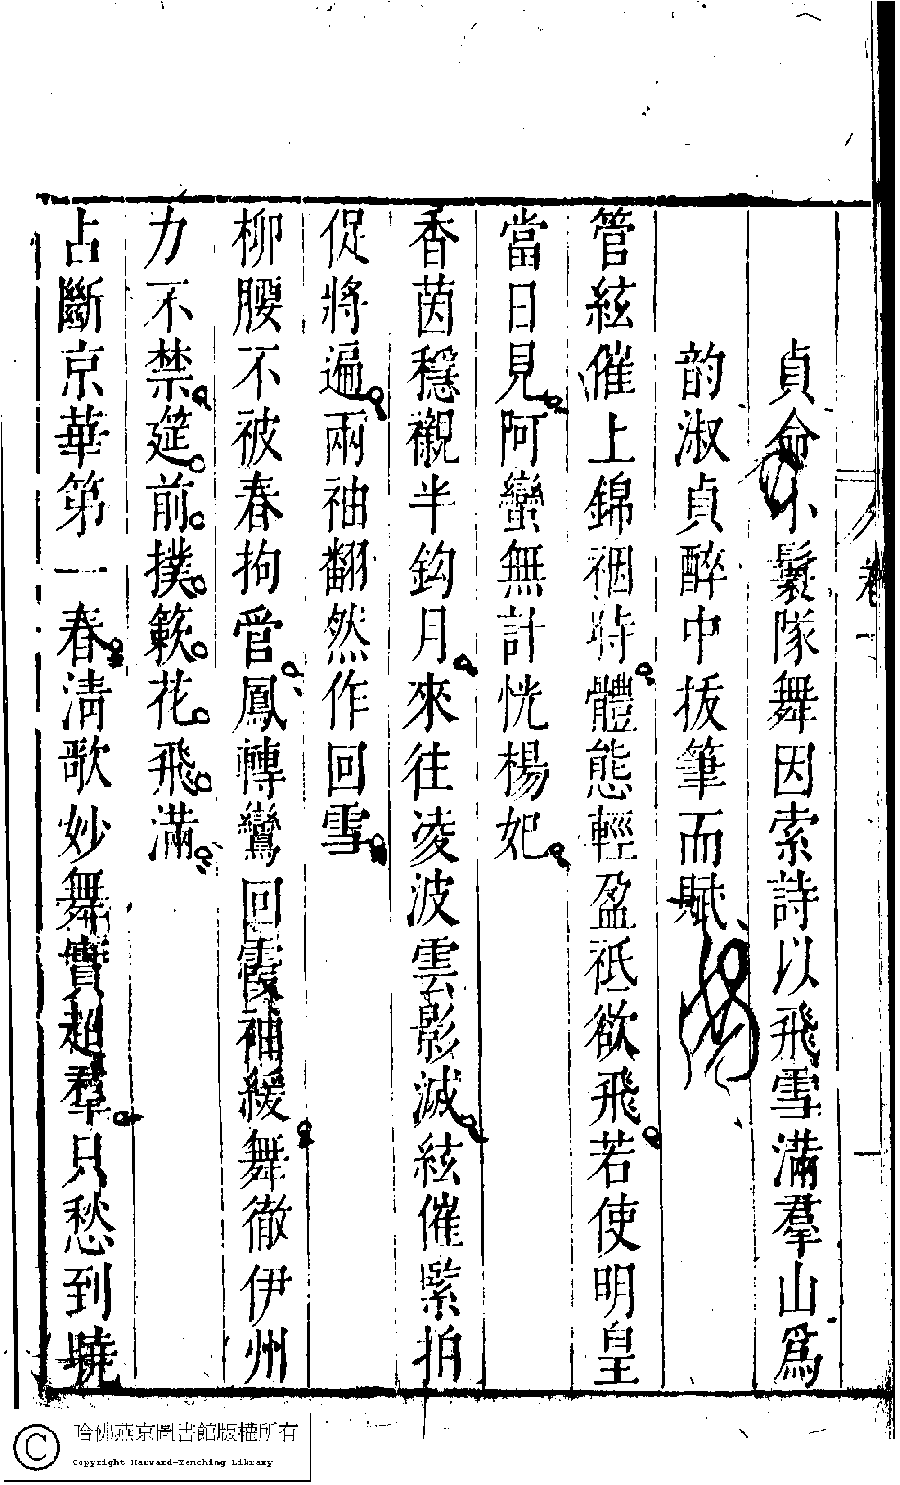 貞命小鬟隊舞因索詩以飛雪滿羣山爲
韵淑貞醉中援筆而賦
管絃催上錦裀時體態輕盈祗欲飛若使明皇
當日見阿蠻無計恍楊妃
香茵穩襯半鈎月來往凌波雲影滅絃催緊拍
促將遍兩袖翻然作回雪
柳腰不被春拘管鳳轉鸞回霞袖緩舞徹伊州
力不禁筵前撲簌花飛滿
占斷京華第一春清歌妙舞實超羣只愁到曉
卷一
哈佛燕京圖書館版權所有
Copyright Harvard-Yenching Library